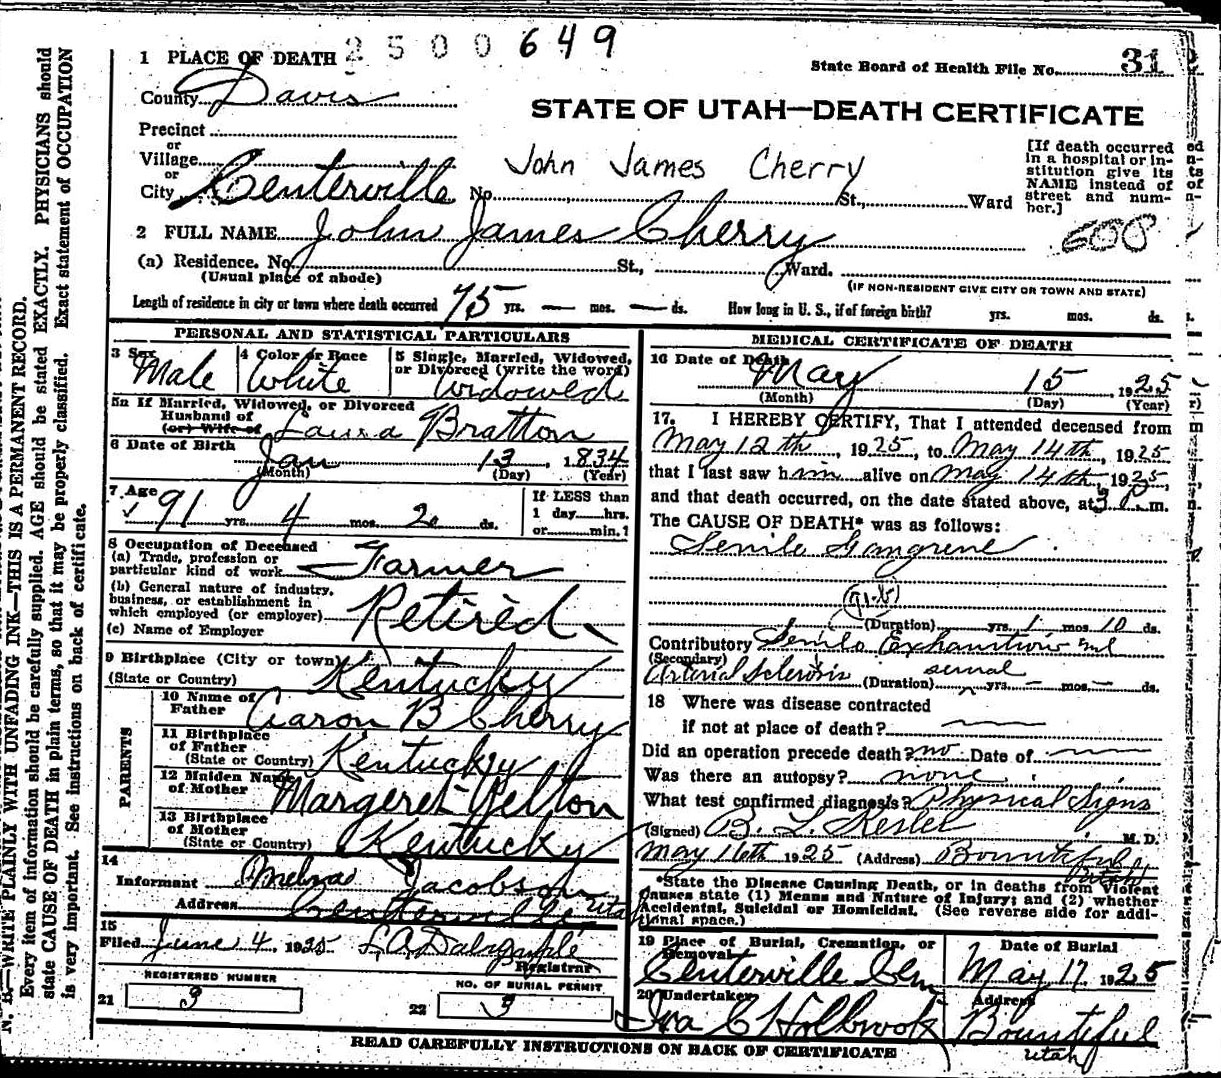 2500649
1 PLACE OF DEATH
State Board of Health File No. 31
County Davis
STATE OF UTAH—DEATH CERTIFICATE
Precinct
or
Village
or
City Centerville No. St., Ward
John James Cherry
[If death occurred
in a hospital or in-
stitution give its
NAME instead of
street and num-
ber.]
2 FULL NAME John James Cherry
600
(a) Residence. No. St., Ward.
(Usual place of abode)
(IF NON-RESIDENT GIVE CITY OR TOWN AND STATE)
Length of residence in city or town where death occurred 75 yrs. — mos. — ds. How long in U. S., if of foreign birth? yrs. mos. ds.
PERSONAL AND STATISTICAL PARTICULARS
3 Sex
Male
4 Color or Race
White
5 Single, Married, Widowed,
or Divorced (write the word)
Widowed
5a If Married, Widowed, or Divorced
Husband of
(or) Wife of
Laura Bratton
6 Date of Birth
Jan 13, 1834
(Month) (Day) (Year)
7 Age
91 yrs. 4 mos. 2 ds.
If LESS than
1 day hrs.
or min.?
8 Occupation of Deceased
(a) Trade, profession or
particular kind of work Farmer
(b) General nature of industry,
business, or establishment in
which employed (or employer) Retired
(c) Name of Employer
9 Birthplace (City or town)
(State or Country) Kentucky
PARENTS
10 Name of
Father Aaron B Cherry
11 Birthplace
of Father
(State or Country) Kentucky
12 Maiden Name
of Mother Margeret Yelton
13 Birthplace
of Mother
(State or Country) Kentucky
14
Informant Jacobson
Address Centerville Utah
15
Filed June 4 1925 L. A. Dalrymple
Registrar
REGISTERED NUMBER
21 3
NO. OF BURIAL PERMIT
22 3
MEDICAL CERTIFICATE OF DEATH
16 Date of Death
May 15 1925
(Month) (Day) (Year)
17. I HEREBY CERTIFY, That I attended deceased from
May 12th, 1925, to May 14th, 1925
that I last saw him alive on May 14th, 1925,
and that death occurred, on the date stated above, at m.
The CAUSE OF DEATH* was as follows:
Senile Gangrene
(Duration) yrs. 1 mos. 10 ds.
Contributory Senile Exhaustion and
(Secondary)
Arterial Sclerosis (Duration) yrs. — mos. — ds.
18 Where was disease contracted
if not at place of death?
Did an operation precede death? no Date of
Was there an autopsy? none
What test confirmed diagnosis? Physical Signs
(Signed) B. L. Kesler M. D.
May 16th 1925 (Address) Bountiful,
Utah
*State the Disease Causing Death, or in deaths from Violent
Causes state (1) Means and Nature of Injury; and (2) whether
Accidental, Suicidal or Homicidal. (See reverse side for addi-
tional space.)
19 Place of Burial, Cremation, or
Removal
Centerville Cem
Date of Burial
May 17 1925
20 Undertaker
Ira C Holbrook
Address
Bountiful
Utah
READ CAREFULLY INSTRUCTIONS ON BACK OF CERTIFICATE
N. B.—WRITE PLAINLY WITH UNFADING INK—THIS IS A PERMANENT RECORD.
Every item of information should be carefully supplied. AGE should be stated EXACTLY. PHYSICIANS should
state CAUSE OF DEATH in plain terms, so that it may be properly classified. Exact statement of OCCUPATION
is very important. See instructions on back of certificate.